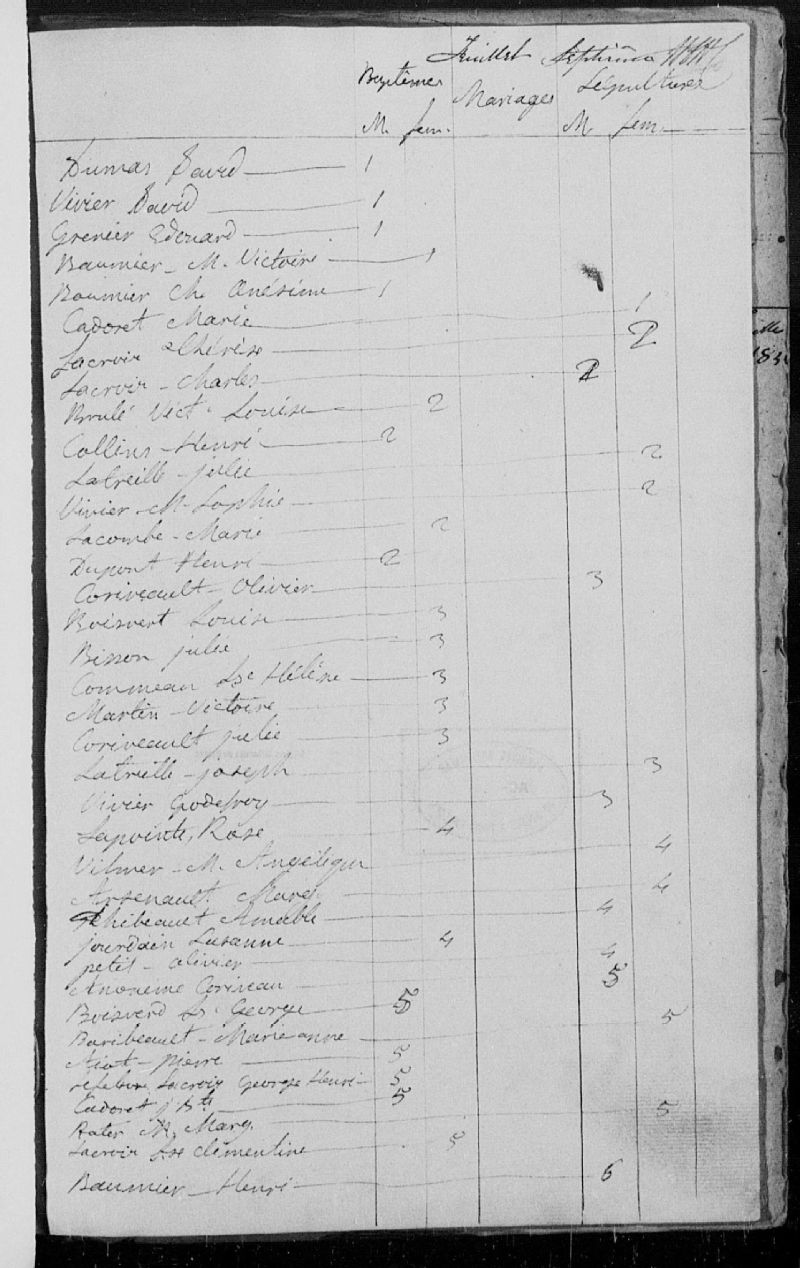 Juillet Septième
Baptêmes Mariages Sépultures
M. fem. M fem.
Dumas David 1
Vivier David 1
Grenier Edouard 1
Baumier M. Victoire 1
Boumier Ch. Onésime 1
Cadoret Marie 1
Lacroix Thérèse 2
Lacroix Charles 2
Brulé Vict. Louise 2
Collins Henri 2
Latreille julie 2
Vivier M. Sophie 2
Lacombe Marie 2
Dupont Henri 2
Coriveault Olivier 3
Boisvert Louise 3
Bisson julie 3
Commeau Hélène 3
Martin Victoire 3
Coriveault julie 3
Latreille joseph 3
Vivier Godefroy 3
Lapointe, Rose 4
Vilmer M. Angélique 4
Arsenault Mary 4
Thibeault Amable 4
jourdain Susanne 4
petit Olivier 4
Anoneme Coriveau 5
Boisverd Ls. George 5
Baribeault Marie anne 5
Aiot pierre 5
refebvre Lacroix George Henri 5
Cadoret j. Bte 5
Rater M. Mary 5
Lacroix Lse Clémentine 5
Baumier Henri 6